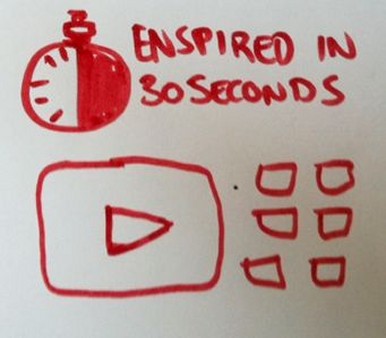 ENSPIRED IN
30 SECONDS